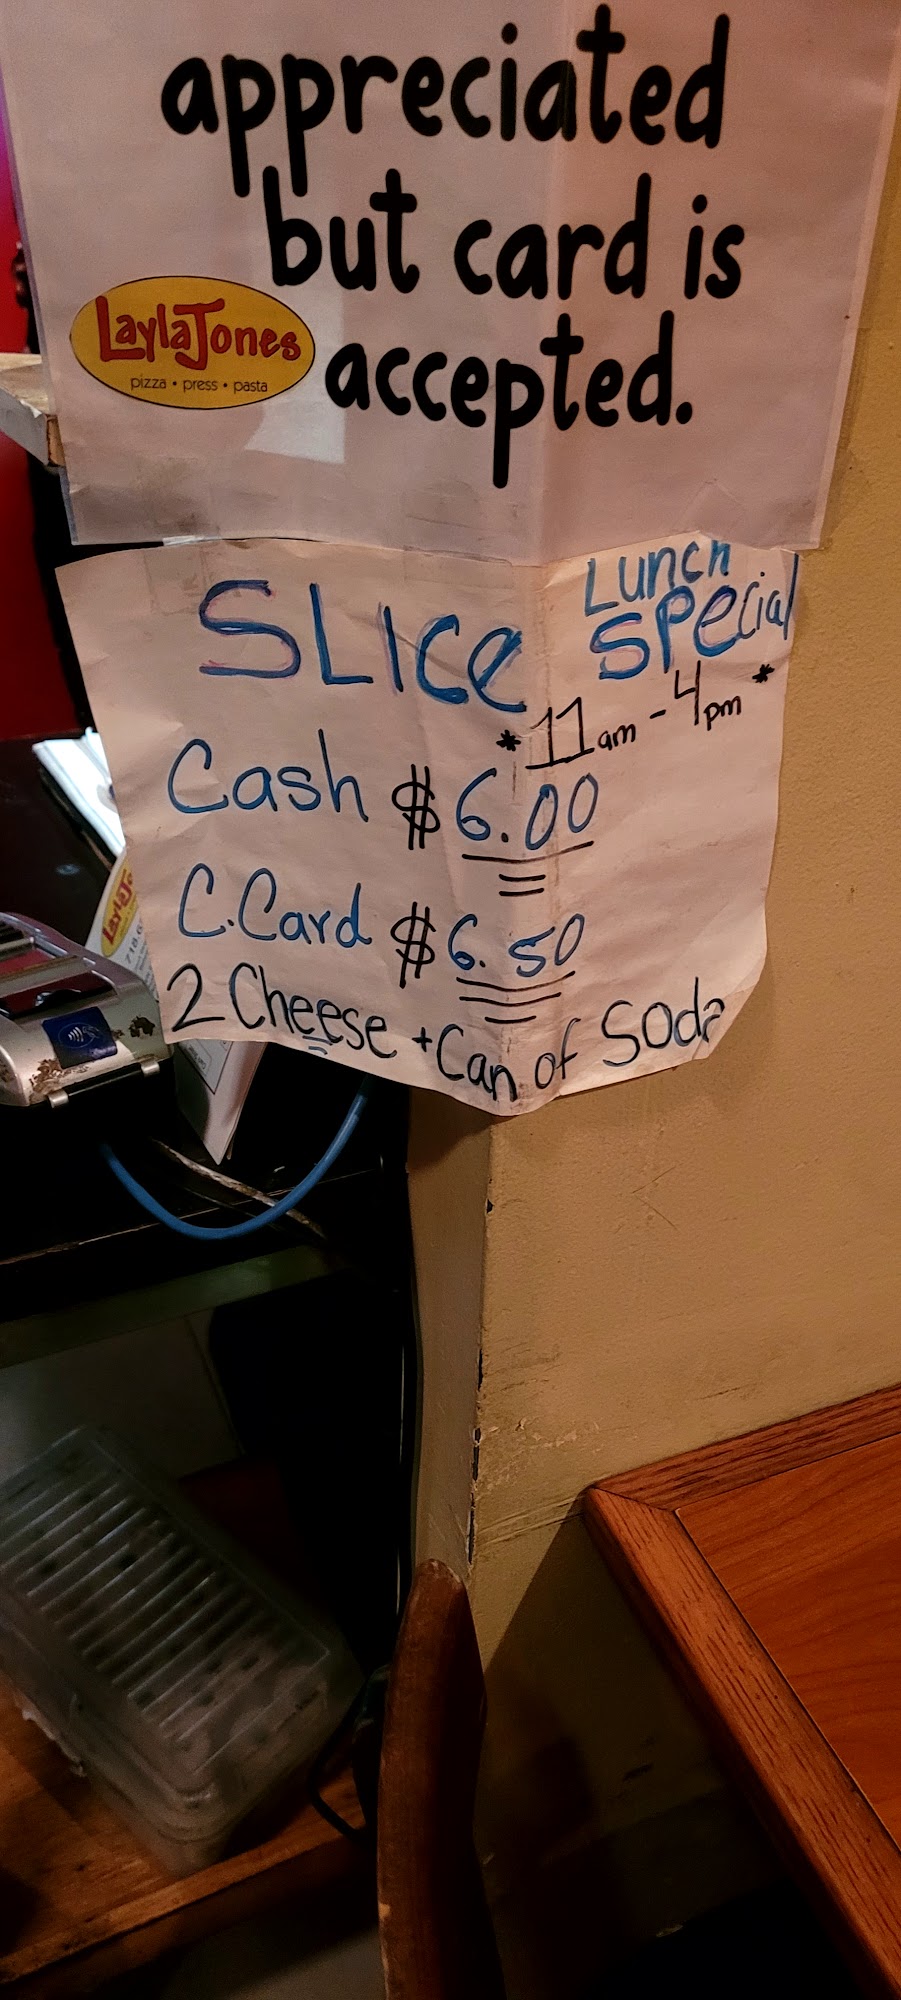 appreciated
but card is
accepted.
LaylaJones
pizza • press • pasta
SLICE
Lunch
Special
*11am - 4pm*
Cash $6.00
C.Card $6.50
2 Cheese + Can of Soda
LaylaJo
718.6